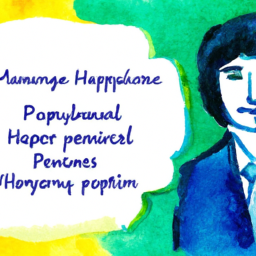 Mamunge Happchane
Popybaual
Hapcr pemirerl
Pencnes
Honycamy popfim